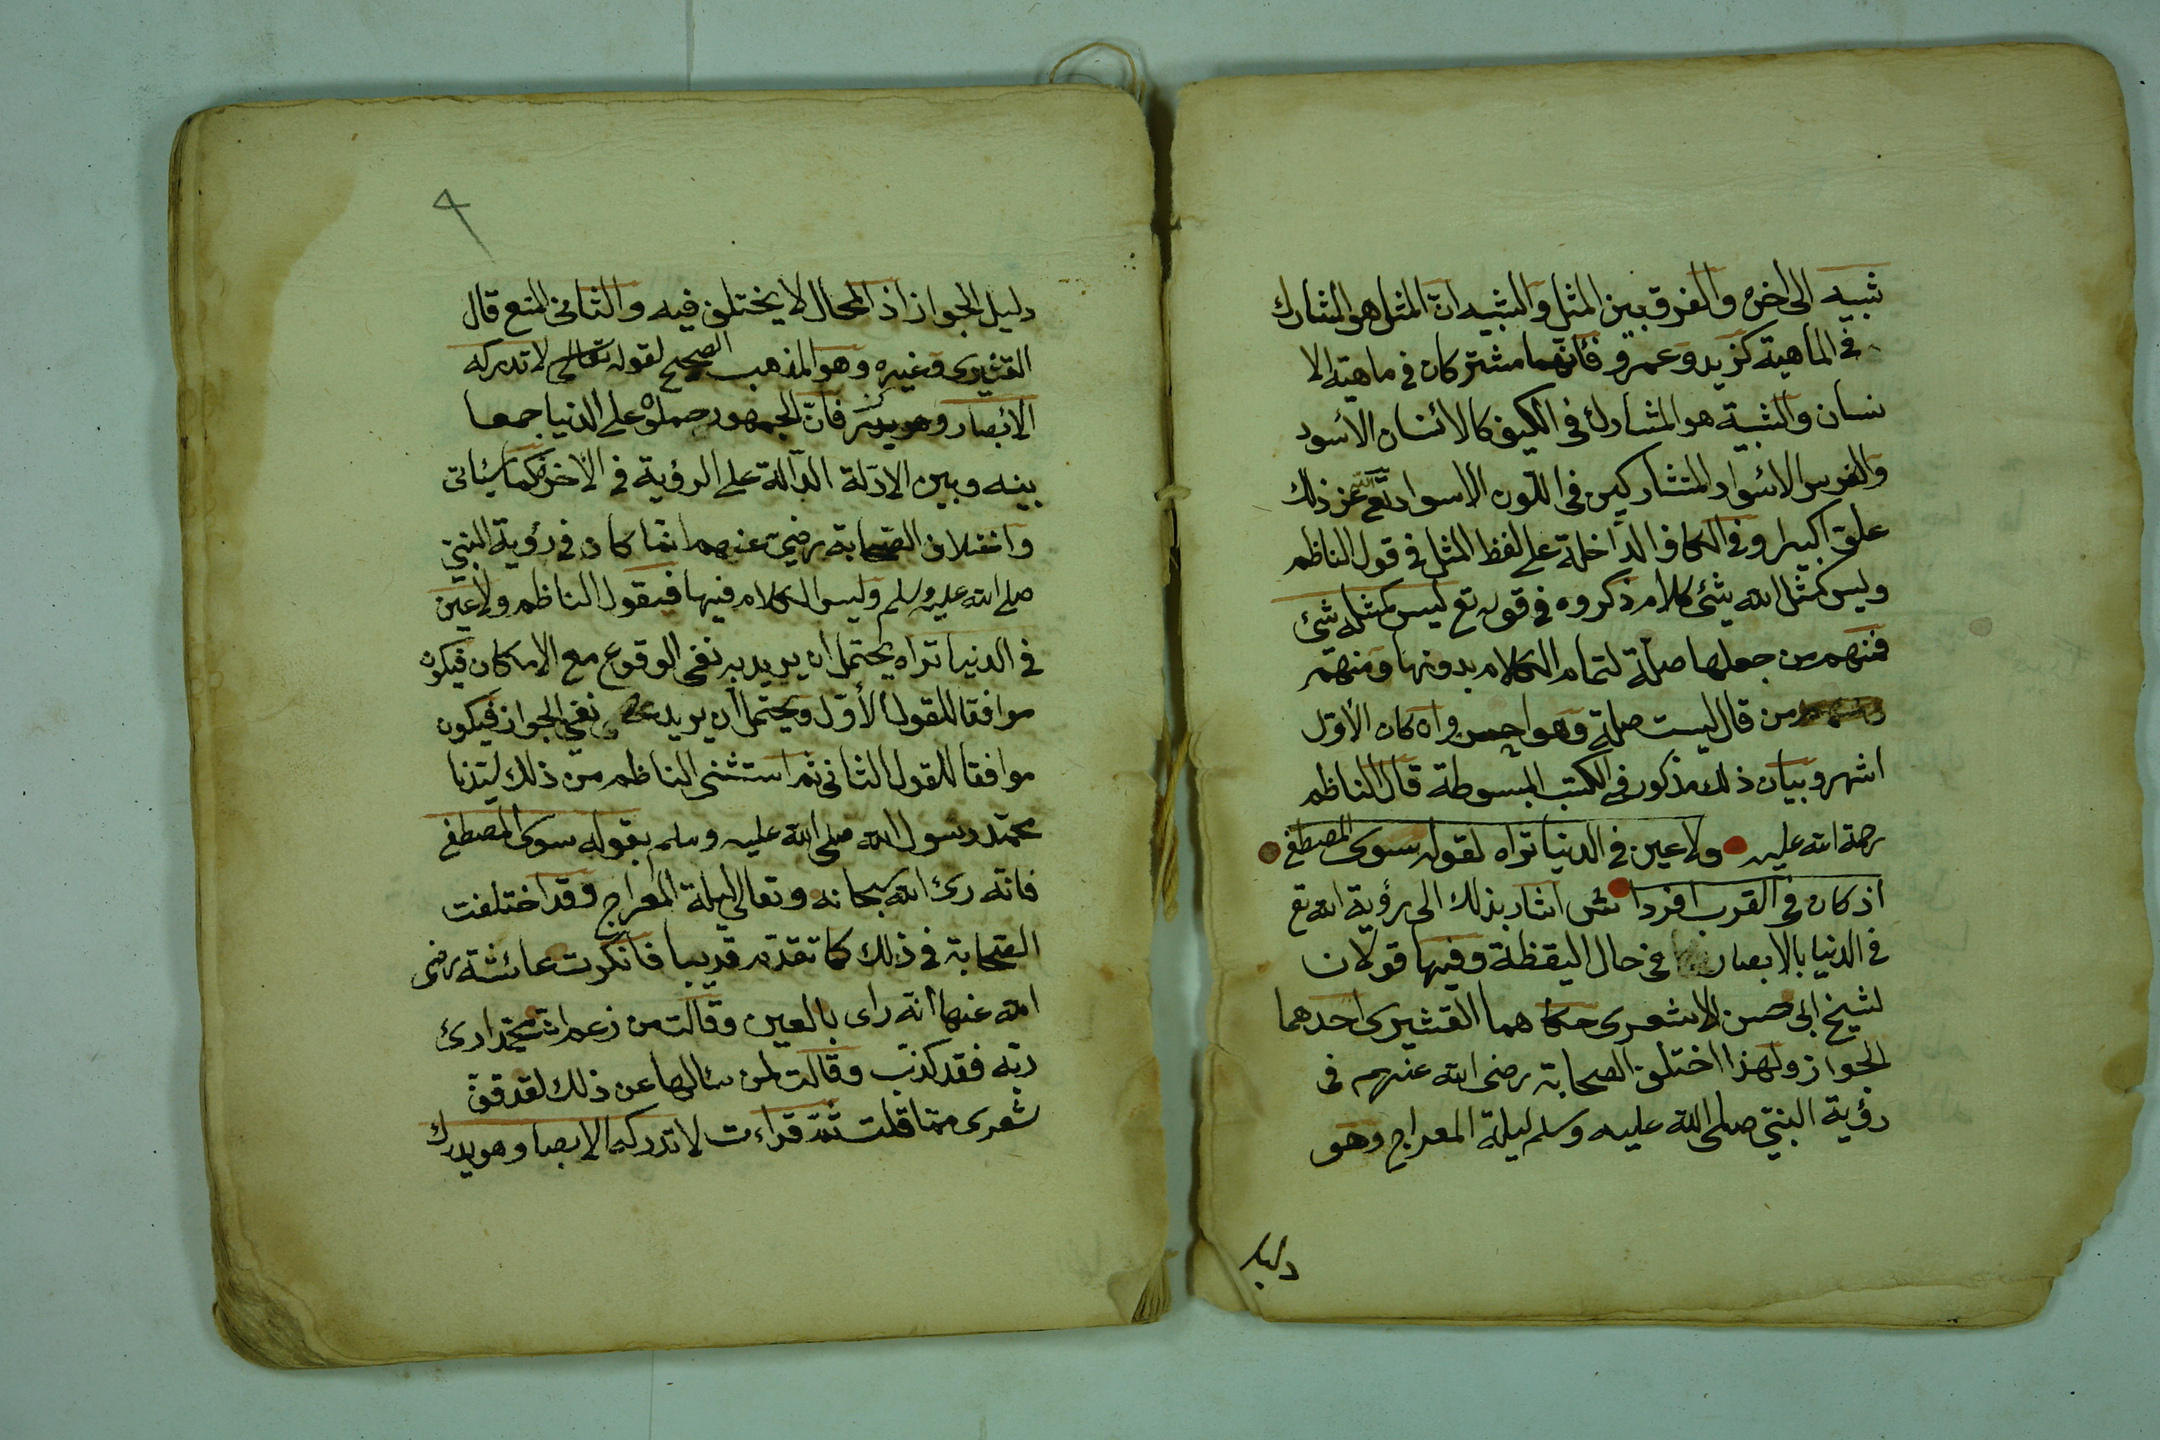 شبيه الى اخره والفرق بين المثل والشبيه ان المثل هو المشارك
في الماهية كزيد وعمرو فأنهما مشتركان في ماهية الا
نسان والشبيه هو المشارك في الكيف كالانسان الاسود
والفرس الاسود المتشاركين في اللون الاسواد تع الله عن ذلك
علوا كبيرا وفي الكاف الداخلة على لفظ المثل في قول الناظم
وليس كمثل الله شئ كلام ذكروه في قوله تع ليس كمثله شئ
فمنهم من جعلها صلة لتمام الكلام بدونها ومنهم
من قال ليست صلة وهو احسن وان كان الاول
اشهر وبيان ذلك مذكور في الكتب المبسوطة قال الناظم
رحمة الله عليه ولاعين في الدنيا تراه لقوله سوى المصطفى
اذ كان في القرب افردا ش اشار بذلك الى رؤية الله تع
في الدنيا بالابصار في حال اليقظة وفيها قولان
لشيخ ابى حسن الاشعرى حكاهما القشيرى احدهما
الجواز ولهذا اختلف الصحابة رضى الله عنهم في
رؤية النبي صلى الله عليه وسلم ليلة المعراج وهو
دليل
٩
دليل الجواز اذ المحال لا يختلف فيه والثانى المنع قال
القشيرى وغيره وهو المذهب الصحيح لقوله تعالى لا تدركه
الابصار وهو يدرك فان الجمهور حملوه على الدنيا جمعا
بينه وبين الادلة الدالة على الرؤية في الاخرة كما سياتى
واختلاف الصحابة رضى عنهم انما كان في رؤية النبي
صلى الله عليه وسلم وليس الكلام فيها فيقول الناظم ولاعين
في الدنيا تراه يحتمل ان يريد به نفى الوقوع مع الامكان فيكون
موافقا للقول الأول ويحتمل ان يريد نفي الجواز فيكون
موافقا للقول الثانى ثم استثنى الناظم من ذلك نبينا
محمد رسول الله صلى الله عليه وسلم بقوله سوى المصطفى
فانه رئ الله سبحانه وتعالى ليلة المعراج وقد اختلفت
الصحابة في ذلك كما تقدم قريبا فانكرت عائشة رضى
الله عنها انه راى بالعين وقالت من زعم ان محمدا رئ
ربه فقد كذب وقالت لمن سالها عن ذلك لقد قف
شعرى مما قلت ثم قراءت لا تدركه الابصا وهو يدرك